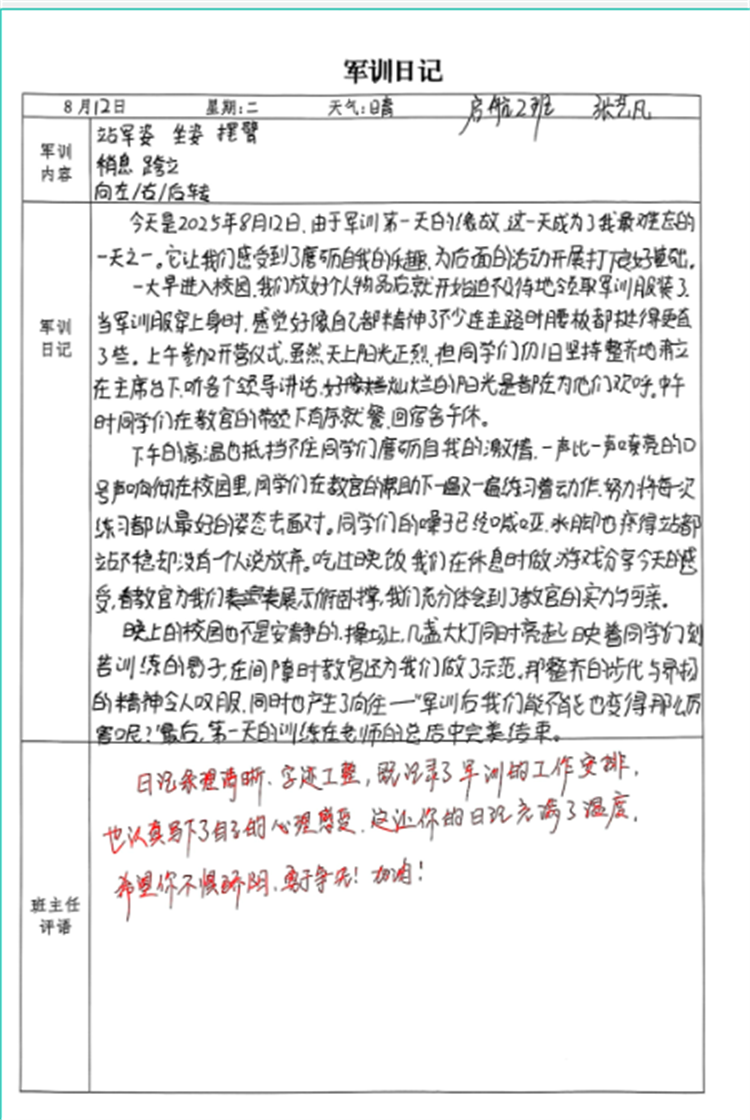 军训日记
8月12日 星期:二 天气:晴 启航2班 张艺凡
军训内容
站军姿 坐姿 摆臂
稍息 跨立
向左/右/后转
军训日记
今天是2025年8月12日,由于军训第一天的缘故,这一天成为了我最难忘的
一天之一。它让我们感受到了磨砺自我的乐趣,为后面的活动开展打下良好基础。
一大早进入校园,我们放好个人物品后就开始迫不及待地领取军训服装了,
当军训服穿上身时,感觉好像自己都精神了不少连走路时腰板都挺得更直
了些。上午参加开营仪式,虽然天上阳光正烈,但同学们仍旧坚持整齐地肃立
在主席台下,听各个领导讲话,灿烂的阳光是都在为他们欢呼。中午
时同学们在教官的带领下有序就餐,回宿舍午休。
下午的高温也抵挡不住同学们磨砺自我的激情,一声比一声嘹亮的口
号声响彻在校园里,同学们在教官的帮助下一遍又一遍练习着动作,努力将每一次
练习都以最好的姿态去面对。同学们的嗓子已经喊哑,水脚也疼得站都
站不稳却没有一个人说放弃。吃过晚饭,我们在休息时做游戏分享今天的感
受,看教官为我们表演展示俯卧撑,我们充分体会到了教官的实力与可亲。
晚上的校园也不是安静的,操场上,几盏大灯同时亮起,映着同学们刻
苦训练的身子,在间隙时教官还为我们做了示范,那整齐的步伐与昂扬
的精神令人叹服,同时也产生了向往——“军训后我们能不能也变得那么厉
害呢?”最后,第一天的训练在老师的总结中完美结束。
班主任评语
日记条理清晰、字迹工整,既记录了军训的工作安排,
也认真写下了自己的心理感受,这让你的日记充满了温度,
希望你不惧骄阳,勇于争先!加油!